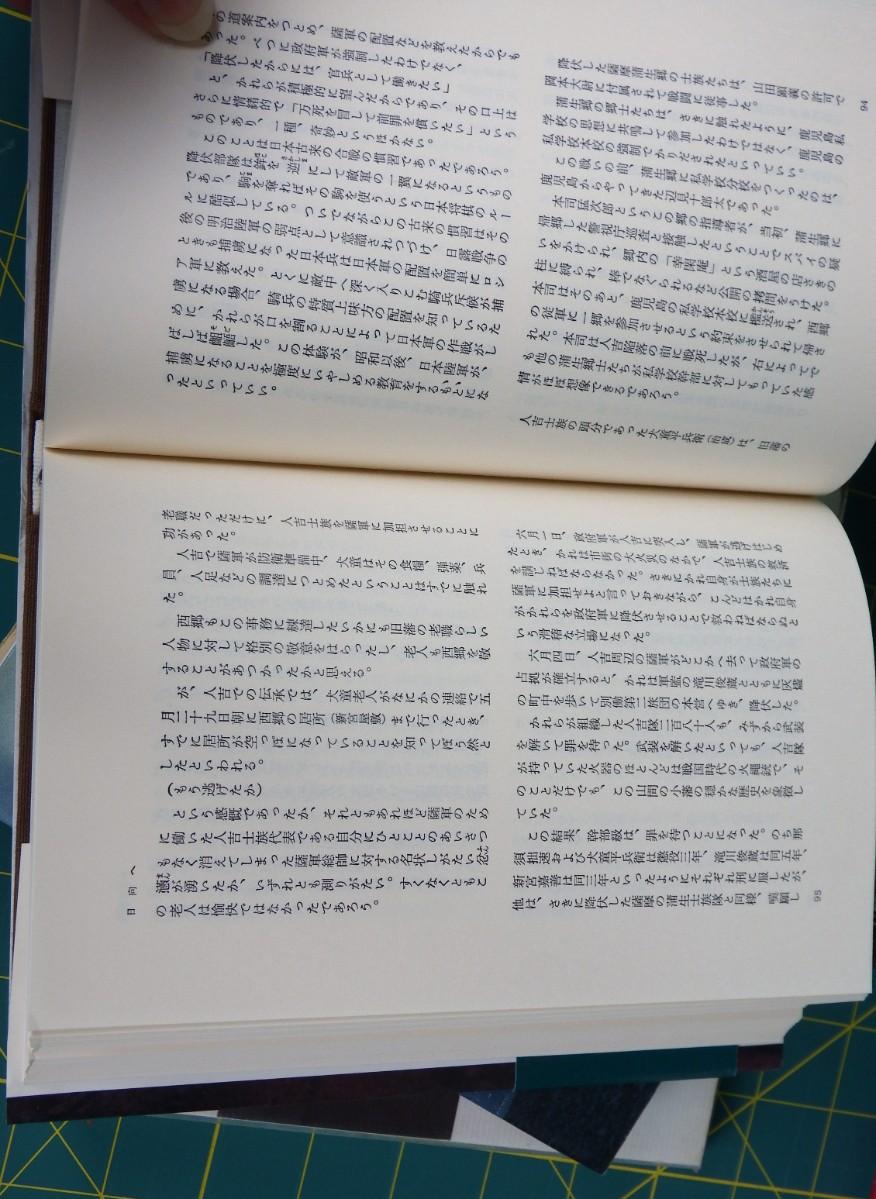 の道案内をつとめ、薩軍の配置などを教えたからでも
あった。べつに政府軍が強制したわけでなく、
「降伏したからには、官兵として働きたい」
と、かれらが積極的に望んだからであり、その口上は
さらに情緒的で「万死を冒して前罪を償いたい」という
ものであり、一種、奇妙というほかない。
このことは日本古来の合戦の慣習であったであろう。
降伏部隊は鉾を逆にして敵軍の一翼になるというもの
であり、駒を乗ればその駒を使うという日本将棋のルー
ルに酷似している。ついでながらこの古来の慣習はその
後の明治陸軍の弱点として意識されつづけ、日露戦争の
ときも捕虜になった日本兵は日本軍の配置を簡単にロシ
ア軍に教えた。とくに敵中へ深く入りこむ騎兵斥候が捕
虜になる場合、騎兵の特質上味方の配置を知っているた
めに、かれらが口を割ることによって日本軍の作戦がし
ばしば齟齬した。この体験が、昭和以後、日本陸軍が、
捕虜になることを極度にいやしめる教育をするもとにな
ったといっていい。
降伏した薩摩蒲生郷の士族たちは、山田顕義の許可で
岡本大尉に付属されて戦闘に従事した。
蒲生郷の郷士たちは、さきに触れたように、鹿児島私
学校の思想に共鳴して参加したわけではなく、鹿児島の
私学校本校の強制でかりだされたといっていい。
この戦いの前、蒲生郷に私学校分校をつくったのは、
鹿児島からやってきた辺見十郎太であった。
本司猛次郎というこの郷の指導者が、当初、蒲生郷に
帰郷した警視庁巡査と接触したということでスパイの疑
いをかけられ、郷内の「幸閑庵」という酒屋の店さきの
柱に縛られ、棒でなぐられるなど公開の拷問をうけた。
本司はそのあと、鹿児島の私学校本校に檻送され、西郷
の従軍に一郷を参加させるという約束をさせられて帰さ
れた。本司は人吉陥落の前に戦死したが、右によってで
も他の蒲生郷士たちが私学校幹部に対してもっていた感
情がほぼ想像できるであろう。
人吉士族の頭分であった犬童平兵衛(治成)は、旧藩の
94
老職だっただけに、人吉士族を薩軍に加担させることに
功があった。
人吉で薩軍が防衛準備中、犬童はその食糧、弾薬、兵
員、人足などの調達につとめたということはすでに触れ
た。
西郷もこの事務に練達したいかにも旧藩の老職らしい
人物に対して格別の敬意をはらったし、老人も西郷を敬
することがあつかったかと思える。
が、人吉での伝承では、犬童老人がなにかの連絡で五
月二十九日朝に西郷の居所(新宮屋敷)まで行ったとき、
すでに居所が空っぽになっていることを知ってぼう然と
したといわれる。
(もう逃げたか)
という感慨であったか、それともあれほど薩軍のため
に働いた人吉士族代表である自分にひとことのあいさつ
もなく消えてしまった薩軍総帥に対する名状しがたい忿
懣が湧いたか、いずれとも測りがたい。すくなくともこ
の老人は愉快ではなかったであろう。
六月一日、政府軍が人吉に突入し、薩軍が逃げはじめ
たとき、かれは市街の大火災のなかで、人吉士族の救済
を講じねばならなかった。さきにかれ自身が士族たちに
薩軍に加担せよと言っておきながら、こんどはかれ自身
がかれらを政府軍に降伏させることで救わねばならぬと
いう滑稽な立場になった。
六月四日、人吉周辺の薩軍がどこかへ去って政府軍の
占拠が確立すると、かれは軍監の滝川俊蔵とともに灰燼
の町中を歩いて別働第二旅団の本営へゆき、降伏した。
かれらが組織した人吉隊二百八十人も、みずから武装
を解いて罪を待った。武装を解いたといっても、人吉隊
が持っていた火器のほとんどは戦国時代の火縄銃で、そ
のことだけでも、この山間の小藩の穏かな歴史を象徴し
ていた。
この結果、幹部級は、罪を待つことになった。のち那
須拙速および犬童平兵衛は懲役三年、滝川俊蔵は同五年、
新宮嘉善は同三年といったようにそれぞれ刑に服したが、
他は、さきに降伏した薩摩の蒲生士族隊と同様、嘆願し
日向へ
95